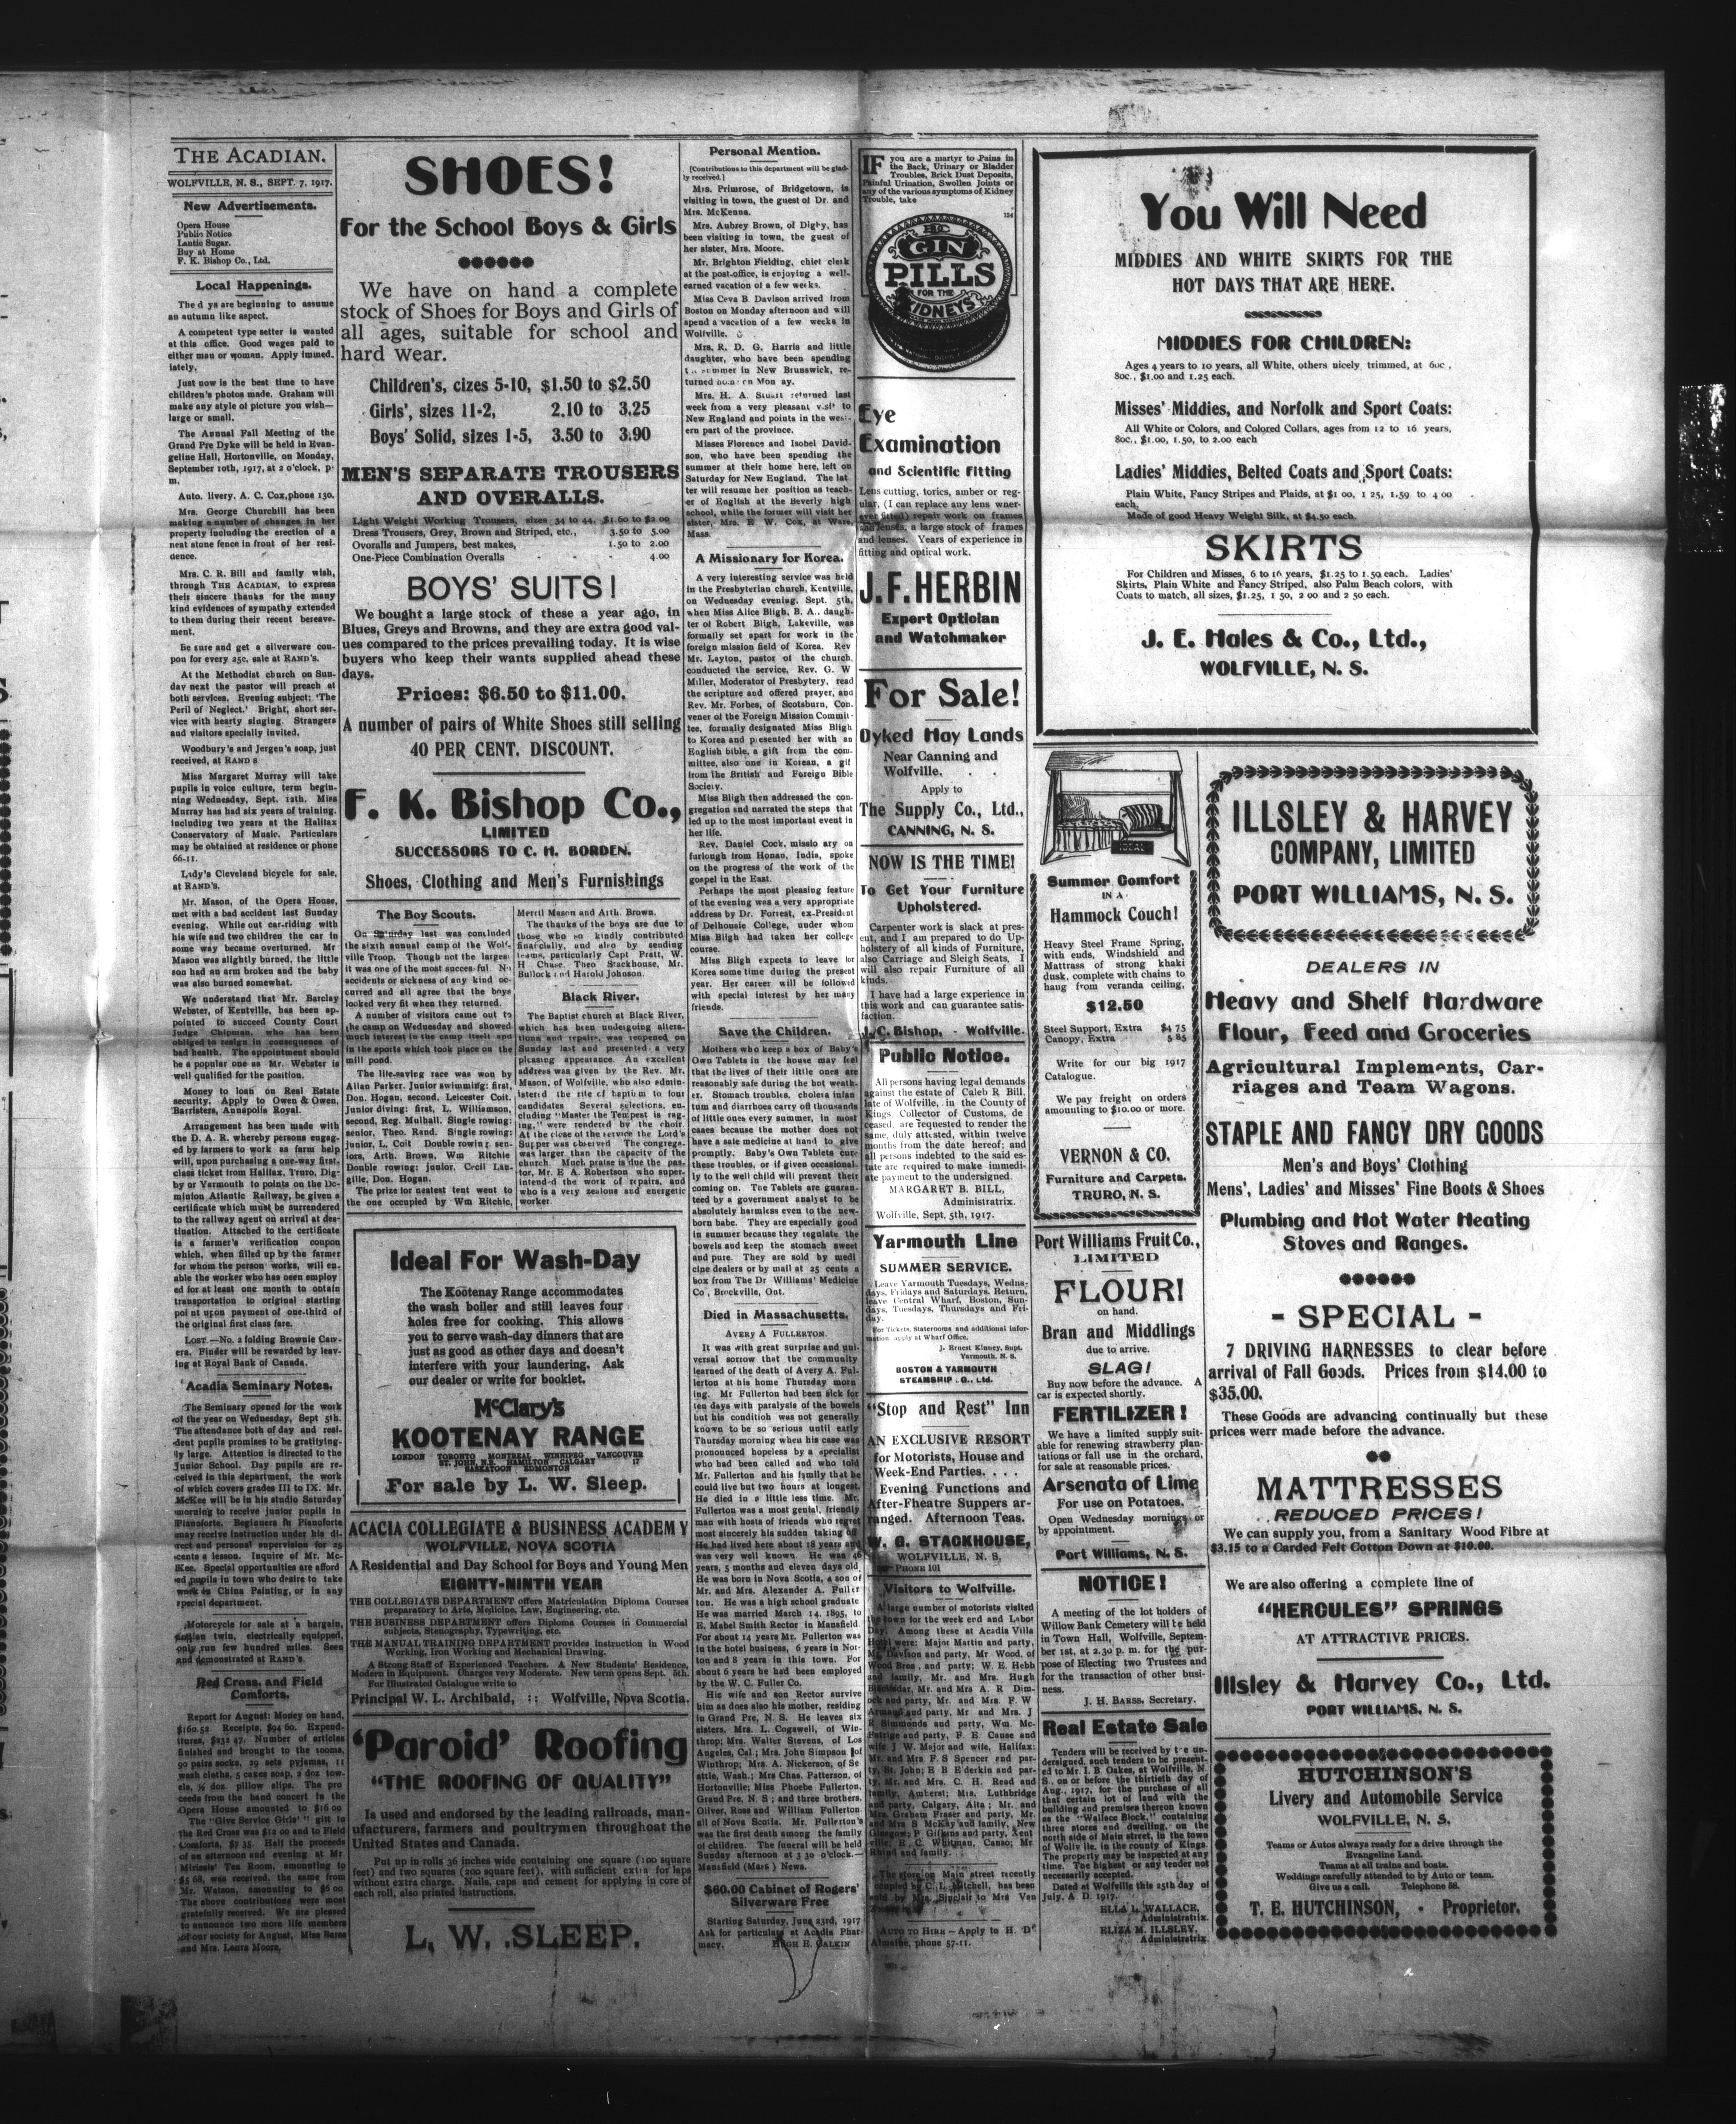 THE ACADIAN.
WOLFVILLE, N. S., SEPT. 7, 1917.
New Advertisements.
Opera House
Public Notice
Lantic Sugar.
Buy at Home
F. K. Bishop Co., Ltd.
Local Happenings.
The d ys are beginning to assume
an autumn like aspect.
A competent type setter is wanted
at this office. Good wages paid to
either man or woman. Apply immed.
lately.
Just now is the best time to have
children's photos made. Graham will
make any style of picture you wish—
large or small.
The Annual Fall Meeting of the
Grand Pre Dyke will be held in Evan-
geline Hall, Hortonville, on Monday,
September 10th, 1917, at 2 o'clock, p·
m.
Auto. livery. A. C. Cox, phone 130.
Mrs. George Churchill has been
making a number of changes in her
property including the erection of a
neat stone fence in front of her resi-
dence.
Mrs. C. R. Bill and family wish,
through THE ACADIAN, to express
their sincere thanks for the many
kind evidences of sympathy extended
to them during their recent bereave-
ment.
Be sure and get a silverware cou-
pon for every 25c. sale at RAND'S.
At the Methodist church on Sun-
day next the pastor will preach at
both services. Evening subject: 'The
Peril of Neglect.' Bright, short ser-
vice with hearty singing. Strangers
and visitors specially invited.
Woodbury's and Jergen's soap, just
received, at RAND S
Miss Margaret Murray will take
pupils in voice culture, term begin-
ning Wednesday, Sept. 12th. Miss
Murray has had six years of training,
including two years at the Halifax
Conservatory of Music. Particulars
may be obtained at residence or phone
66-11.
Lady's Cleveland bicycle for sale,
at RAND'S.
Mr. Mason, of the Opera House,
met with a bad accident last Sunday
evening. While out car-riding with
his wife and two children the car in
some way became overturned. Mr
Mason was slightly burned, the little
son had an arm broken and the baby
was also burned somewhat.
We understand that Mr. Barclay
Webster, of Kentville, has been ap-
pointed to succeed County Court
Judge Chipman, who has been
obliged to resign in consequence of
bad health. The appointment should
be a popular one as Mr. Webster is
well qualified for the position.
Money to loan on Real Estate
security. Apply to Owen & Owen,
Barristers, Annapolis Royal.
Arrangement has been made with
the D. A. R. whereby persons engag-
ed by farmers to work as farm help
will, upon purchasing a one-way first-
class ticket from Halifax, Truro, Dig-
by or Yarmouth to points on the Do-
minion Atlantic Railway, be given a
certificate which must be surrendered
to the railway agent on arrival at des-
tination. Attached to the certificate
is a farmer's verification coupon
which, when filled up by the farmer
for whom the person works, will en-
able the worker who has been employ
ed for at least one month to obtain
transportation to original starting
point upon payment of one-third of
the original first class fare.
LOST—No. 2 folding Brownie Cam-
era. Finder will be rewarded by leav-
ing at Royal Bank of Canada.
Acadia Seminary Notes.
The Seminary opened for the work
of the year on Wednesday, Sept 5th.
The attendance both of day and resi-
dent pupils promises to be gratifying-
ly large. Attention is directed to the
Junior School. Day pupils are re-
ceived in this department, the work
of which covers grades III to IX. Mr.
McKee will be in his studio Saturday
morning to receive junior pupils in
Pianoforte. Beginners in Pianoforte
may receive instruction under his di-
rect and personal supervision for 25
cents a lesson. Inquire of Mr. Mc-
Kee. Special opportunities are afford
ed pupils in town who desire to take
work in China Painting, or in any
special department.
Motorcycle for sale at a bargain,
Indian twin, electrically equipped,
only run few hundred miles. Seen
and demonstrated at RAND'S.
Red Cross, and Field
Comforts.
Report for August: Money on hand,
$160.52 Receipts, $94 60. Expend-
itures, $232 47. Number of articles
finished and brought to the rooms,
90 pairs socks, 29 sets pyjamas, 11
wash cloths, 5 cakes soap, 2 doz tow-
els, ½ doz. pillow slips. The pro
ceeds from the band concert in the
Opera House amounted to $16 00
The "Give Service Girls'" gift to
the Red Cross was $12 00 and to Field
Comforts, $7 35. Half the proceeds
of an afternoon and evening at Mr
Tea Room, amounting to
$5 68, was received, the same from
Mr. Watson, amounting to $6 00
The above contributions were most
gratefully received. We are pleased
to announce two more life members
of our society for August, Miss Barss
and Mrs. Laura Moore.
SHOES!
For the School Boys & Girls
We have on hand a complete
stock of Shoes for Boys and Girls of
all ages, suitable for school and
hard wear.
Children's, cizes 5-10, $1.50 to $2.50
Girls', sizes 11-2, 2.10 to 3.25
Boys' Solid, sizes 1-5, 3.50 to 3.90
MEN'S SEPARATE TROUSERS
AND OVERALLS.
Light Weight Working Trousers, sizes 34 to 44, $1.60 to $2.00
Dress Trousers, Grey, Brown and Striped, etc., 3.50 to 5.00
Ovoralls and Jumpers, best makes, 1.50 to 2.00
One-Piece Combination Overalls - - - 4.00
BOYS' SUITS!
We bought a large stock of these a year ago, in
Blues, Greys and Browns, and they are extra good val-
ues compared to the prices prevailing today. It is wise
buyers who keep their wants supplied ahead these
days.
Prices: $6.50 to $11.00.
A number of pairs of White Shoes still selling
40 PER CENT. DISCOUNT.
F. K. Bishop Co.,
LIMITED
SUCCESSORS TO C. H. BORDEN.
Shoes, Clothing and Men's Furnishings
The Boy Scouts.
On Saturday last was concluded
the sixth annual camp of the Wolf-
ville Troop. Though not the largest
it was one of the most succes-ful. No
accidents or sickness of any kind oc-
curred and all agree that the boys
looked very fit when they returned.
A number of visitors came out to
the camp on Wednesday and showed
much interest in the camp itself and
in the sports which took place on the
mill pond.
The life-saving race was won by
Allan Parker. Junior swimming: first,
Don. Hogan, second, Leicester Coit.
Junior diving: first, L. Williamson,
second, Reg. Mulhall. Single rowing:
senior, Theo. Rand. Single rowing:
junior, L. Coit Double rowing sen-
iors, Arth. Brown, Wm Ritchie
Double rowing: junior, Cecil Lan-
gille, Don. Hogan.
The prize for neatest tent went to
the one occupied by Wm Ritchie,
Merril Mason and Arth. Brown.
The thanks of the boys are due to
those who so kindly contributed
financially, and also by sending
teams, particularly Capt Pratt, W.
H Chase, Theo Stackhouse, Mr.
Bullock and Harold Johnson.
Black River.
The Baptist church at Black River,
which has been undergoing altera-
tions and repairs, was reopned on
Sunday last and presented a very
pleasing appearance. An excellent
address was given by the Rev. Mr.
Mason, of Wolfville, who also admin-
istered the rite of baptism to four
candidates Several selections, en-
cluding "Master the Tempest is rag-
ing," were rendered by the choir.
At the close of the service the Lord's
Supper was observed The congrega-
was larger than the capacity of the
church Much praise is due the pas-
tor, Mr. E A. Robertson who super-
intend-d the work of repairs, and
who is a very zealous and energetic
worker.
Ideal For Wash-Day
The Kootenay Range accommodates
the wash boiler and still leaves four
holes free for cooking. This allows
you to serve wash-day dinners that are
just as good as other days and doesn't
interfere with your laundering. Ask
our dealer or write for booklet.
McClary's
KOOTENAY RANGE
LONDON TORONTO MONTREAL WINNIPEG VANCOUVER
ST. JOHN, N.B. HAMILTON CALGARY 17
SASKATOON EDMONTON
For sale by L. W. Sleep.
ACACIA COLLEGIATE & BUSINESS ACADEMY
WOLFVILLE, NOVA SCOTIA
A Residential and Day School for Boys and Young Men
EIGHTY-NINTH YEAR
THE COLLEGIATE DEPARTMENT offers Matriculation Diploma Courses
preparatory to Arts, Medicine, Law, Engineering, etc.
THE BUSINESS DEPARTMENT offers Diploma Courses in Commercial
subjects, Stenography, Typewriting, etc.
THE MANUAL TRAINING DEPARTMENT provides instruction in Wood
Working, Iron Working and Mechanical Drawing.
A Strong Staff of Experienced Teachers. A New Students' Residence,
Modern in Equipment. Charges very Moderate. New term opens Sept. 5th.
For Illustrated Catalogue write to
Principal W. L. Archibald, :: Wolfville, Nova Scotia.
'Paroid' Roofing
"THE ROOFING OF QUALITY"
Is used and endorsed by the leading railroads, man-
ufacturers, farmers and poultrymen throughoat the
United States and Canada.
Put up in rolls 36 inches wide containing one square (100 square
feet) and two squares (200 square feet), with sufficient extra for laps
without extra charge. Nails, caps and cement for applying in core of
each roll, also printed instructions.
L. W. SLEEP.
Personal Mention.
[Contributions to this department will be glad-
ly received.]
Mrs. Primrose, of Bridgetown, is
visiting in town, the guest of Dr. and
Mrs. McKenna.
Mrs. Aubrey Brown, of Digby, has
been visiting in town, the guest of
her sister, Mrs. Moore.
Mr. Brighton Fielding, chief clerk
at the post-office, is enjoying a well-
earned vacation of a few weeks.
Miss Ceva B. Davison arrived from
Boston on Monday afternoon and will
spend a vacation of a few weeks in
Wolfville.
Mrs. R. D. G. Harris and little
daughter, who have been spending
t.. summer in New Brunswick, re-
turned home on Mon ay.
Mrs. H. A. Stuart returned last
week from a very pleasant visit to
New England and points in the west-
ern part of the province.
Misses Florence and Isobel David-
son, who have been spending the
summer at their home here, left on
Saturday for New England. The lat
ter will resume her position as teach-
er of English at the Beverly high
school, while the former will visit her
sister, Mrs. E W. Cox, at Ware,
Mass.
A Missionary for Korea.
A very interesting service was held
in the Presbyterian church, Kentville,
on Wednesday evening, Sept. 5th,
when Miss Alice Bligh, B. A., daugh-
ter of Robert Bligh, Lakeville, was
formally set apart for work in the
foreign mission field of Korea. Rev
Mr. Layton, pastor of the church,
conducted the service, Rev. G. W
Miller, Moderator of Presbytery, read
the scripture and offered prayer, and
Rev. Mr. Forbes, of Scotsburn, Con-
vener of the Foreign Mission Commit-
tee, formally designated Miss Bligh
to Korea and presented her with an
English bible, a gift from the com-
mittee, also one in Korean, a gif
from the British and Foreign Bible
Society.
Miss Bligh then addressed the con-
gregation and narrated the steps that
led up to the most important event in
her life.
Rev. Daniel Cock, missio ary on
furlough from Honan, India, spoke
on the progress of the work of the
gospel in the East.
Perhaps the most pleasing feature
of the evening was a very appropriate
address by Dr. Forrest, ex-President
of Delhousie College, under whom
Miss Bligh had taken her college
course.
Miss Bligh expects to leave for
Korea some time during the present
year. Her career will be followed
with special interest by her many
friends.
Save the Children.
Mothers who keep a box of Baby's
Own Tablets in the house may feel
that the lives of their little ones are
reasonably safe during the hot weath-
er. Stomach troubles, cholera infan
tum and diarrhoea carry off thousands
of little ones every summer, in most
cases because the mother does not
have a safe medicine at hand to give
promptly. Baby's Own Tablets cure
these troubles, or if given occasional-
ly to the well child will prevent their
coming on. The Tablets are guaran-
teed by a government analyst to be
absolutely harmless even to the new-
born babe. They are especially good
in summer because they regulate the
bowels and keep the stomach sweet
and pure. They are sold by medi
cine dealers or by mail at 25 cents a
box from The Dr Williams' Medicine
Co, Brockville, Ont.
Died in Massachusetts.
AVERY A FULLERTON.
It was with great surprise and uni-
versal sorrow that the community
learned of the death of Avery A. Ful-
lerton at his home Thursday morn
ing. Mr Fullerton had been sick for
ten days with paralysis of the bowels
but his condition was not generally
known to be so serious until early
Thursday morning when his case was
pronounced hopeless by a specialist
who had been called and who told
Mr. Fullerton and his family that he
could live but two hours at longest.
He died in a little less time. Mr.
Fullerton was a most genial, friendly
man with hosts of friends who regret
most sincerely his sudden taking off
He had lived here about 18 years and
was very well known. He was 46
years, 5 months and eleven days old
He was born in Nova Scotia, a son of
Mr. and Mrs. Alexander A. Fuller
ton. He was a high school graduate
He was married March 14, 1895, to
E. Mabel Smith Rector in Mansfield.
For about 14 years Mr. Fullerton was
in the hotel business, 6 years in Nor-
ton and 8 years in this town. For
about 6 years he had been employed
by the W. C. Fuller Co.
His wife and son Rector survive
him as does also his mother, residing
in Grand Pre, N. S. He leaves six
sisters, Mrs. L. Cogswell, of Win-
throp; Mrs. Walter Stevens, of Los
Angeles, Cal.; Mrs. John Simpson of
Winthrop; Mrs. A. Nickerson, of Se
attle, Wash.; Mrs Chas. Patterson, of
Hortonville; Miss Phoebe Fullerton,
Grand Pre, N. S; and three brothers,
Oliver, Ross and William Fullerton
all of Nova Scotia. Mr. Fullerton's
was the first death among the family
of children. The funeral will be held
Sunday afternoon at 3 30 o'clock.—
Mansfield (Mass) News.
$60.00 Cabinet of Rogers'
Silverware Free
Starting Saturday, June 23rd, 1917
Ask for particulars at Acadia Phar-
macy. HUGH E. CALKIN
IF you are a martyr to Pains in
the Back, Urinary or Bladder
Troubles, Brick Dust Deposits,
Painful Urination, Swollen Joints or
any of the various symptoms of Kidney
Trouble, take
134
GIN
PILLS
FOR THE
KIDNEYS
Eye
Examination
and Scientific Fitting
Lens cutting, torics, amber or reg-
ular, (I can replace any lens wher-
ever fitted) repair work on frames
and lenses, a large stock of frames
and lenses. Years of experience in
fitting and optical work.
J. F. HERBIN
Expert Optician
and Watchmaker
For Sale!
Dyked Hay Lands
Near Canning and
Wolfville. . .
Apply to
The Supply Co., Ltd.,
CANNING, N. S.
NOW IS THE TIME!
To Get Your Furniture
Upholstered.
Carpenter work is slack at pres-
ent, and I am prepared to do Up-
holstery of all kinds of Furniture,
also Carriage and Sleigh Seats. I
will also repair Furniture of all
kinds.
I have had a large experience in
this work and can guarantee satis-
faction.
J. C. Bishop, - Wolfville.
Public Notice.
All persons having legal demands
against the estate of Caleb R Bill,
late of Wolfville, in the County of
Kings, Collector of Customs, de
ceased, are requested to render the
same, duly attested, within twelve
months from the date hereof; and
all persons indebted to the said es-
tate are required to make immedi-
ate payment to the undersigned.
MARGARET B. BILL,
Administratrix.
Wolfville, Sept. 5th, 1917.
Yarmouth Line
SUMMER SERVICE.
Leave Yarmouth Tuesdays, Wednes-
days, Fridays and Saturdays. Return,
leave Central Wharf, Boston, Sun-
days, Tuesdays, Thursdays and Fri-
day.
For Tickets, Staterooms and additional infor-
mation, apply at Wharf Office.
J. Ernest Kinney, Supt.
Yarmouth, N. S.
BOSTON & YARMOUTH
STEAMSHIP .O., Ltd.
"Stop and Rest" Inn
AN EXCLUSIVE RESORT
for Motorists, House and
Week-End Parties. . . .
Evening Functions and
After-Fheatre Suppers ar-
ranged. Afternoon Teas.
W. G. STACKHOUSE,
WOLFVILLE, N. S.
PHONE 101
Visitors to Wolfville.
A large number of motorists visited
the town for the week end and Labor
Day. Among these at Acadia Villa
Hotel were: Major Martin and party,
Mr. Davison and party, Mr. Wood, of
Wood Bros., and party; W. E. Hebb
and family, Mr. and Mrs. Hugh
Mr. and Mrs A. R Dim-
ock and party, Mr. and Mrs. F. W
and party, Mr and Mrs. J
R Simmonds and party, Wm. Mc-
and party, F. E. Cause and
wife, J W. Major and wife, Halifax:
Mr. and Mrs. F. S Spencer and par-
ty, St. John; E B Elderkin and par-
ty, Mr. and Mrs. C. H. Read and
family, Amherst; Mrs. Luthbridge
and party, Calgary, Alta; Mr. and
Mrs. Graham Fraser and party, Mr.
and Mrs S McKay and family, New
Glasgow; P Gifkins and party, Kent
ville; E. C. Whitman, Canso; Mr.
and family.
The store on Main street recently
occupied by C. L. Mitchell, has been
sold by Mrs. Sinclair to Mrs Van
AUTO TO HIRE—Apply to H. D
phone 57-11.
You Will Need
MIDDIES AND WHITE SKIRTS FOR THE
HOT DAYS THAT ARE HERE.
MIDDIES FOR CHILDREN:
Ages 4 years to 10 years, all White, others nicely trimmed, at 60c ,
80c., $1.00 and 1.25 each.
Misses' Middies, and Norfolk and Sport Coats:
All White or Colors, and Colored Collars, ages from 12 to 16 years,
80c., $1.00, 1.50, to 2.00 each
Ladies' Middies, Belted Coats and Sport Coats:
Plain White, Fancy Stripes and Plaids, at $1 00, 1 25, 1.59 to 4 00
each.
Made of good Heavy Weight Silk, at $4.50 each.
SKIRTS
For Children and Misses, 6 to 16 years, $1.25 to 1.50 each. Ladies'
Skirts, Plain White and Fancy Striped, also Palm Beach colors, with
Coats to match, all sizes, $1.25, 1 50, 2 00 and 2 50 each.
J. E. Hales & Co., Ltd.,
WOLFVILLE, N. S.
IDEAL
Summer Comfort
IN A
Hammock Couch!
Heavy Steel Frame Spring,
with ends, Windshield and
Mattrass of strong khaki
dusk, complete with chains to
hang from veranda ceiling,
$12.50
Steel Support, Extra $4 75
Canopy, Extra 5 85
Write for our big 1917
Catalogue.
We pay freight on orders
amounting to $10.00 or more.
VERNON & CO.
Furniture and Carpets.
TRURO, N. S.
Port Williams Fruit Co.,
LIMITED
FLOUR!
on hand.
Bran and Middlings
due to arrive.
SLAG!
Buy now before the advance. A
car is expected shortly.
FERTILIZER!
We have a limited supply suit-
able for renewing strawberry plan-
tations or fall use in the orchard,
for sale at reasonable prices.
Arsenata of Lime
For use on Potatoes.
Open Wednesday mornings or
by appointment.
Port Williams, N. S.
NOTICE!
A meeting of the lot holders of
Willow Bank Cemetery will be held
in Town Hall, Wolfville, Septem-
ber 1st, at 2.30 p. m. for the pur-
pose of Electing two Trustees and
for the transaction of other busi-
ness.
J. H. BARSS, Secretary.
Real Estate Sale
Tenders will be received by t e un-
dersigned, such tenders to be present-
ed to Mr. I. B. Oakes, at Wolfville, N.
S., on or before the thirtieth day of
Aug., 1917, for the purchase of all
that certain lot of land with the
building and premises thereon known
as the "Wallace Block," containing
three stores and dwelling, on the
north side of Main street, in the town
of Wolfville, in the county of Kings.
The property may be inspected at any
time. The highest or any tender not
necessarily accepted.
Dated at Wolfville this 25th day of
July, A. D. 1917.
ELLA L. WALLACE,
Administratrix.
ELIZA M. ILLSLEY,
Administratrix.
ILLSLEY & HARVEY
COMPANY, LIMITED
PORT WILLIAMS, N. S.
DEALERS IN
Heavy and Shelf Hardware
Flour, Feed and Groceries
Agricultural Implements, Car-
riages and Team Wagons.
STAPLE AND FANCY DRY GOODS
Men's and Boys' Clothing
Mens', Ladies' and Misses' Fine Boots & Shoes
Plumbing and Hot Water Heating
Stoves and Ranges.
- SPECIAL -
7 DRIVING HARNESSES to clear before
arrival of Fall Goods. Prices from $14.00 to
$35.00.
These Goods are advancing continually but these
prices werr made before the advance.
MATTRESSES
REDUCED PRICES!
We can supply you, from a Sanitary Wood Fibre at
$3.15 to a Carded Felt Cotton Down at $10.00.
We are also offering a complete line of
"HERCULES" SPRINGS
AT ATTRACTIVE PRICES.
Illsley & Harvey Co., Ltd.
PORT WILLIAMS, N. S.
HUTCHINSON'S
Livery and Automobile Service
WOLFVILLE, N. S.
Teams or Autos always ready for a drive through the
Evangeline Land.
Teams at all trains and boats.
Weddings carefully attended to by Auto or team.
Give us a call. Telephone 58.
T. E. HUTCHINSON, - Proprietor.